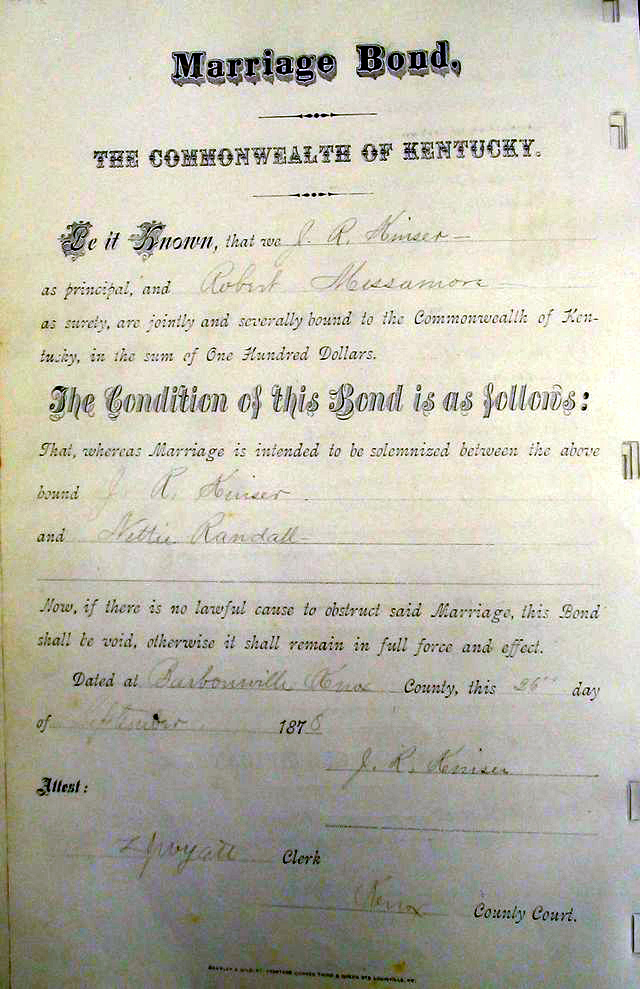 Marriage Bond,
THE COMMONWEALTH OF KENTUCKY.
Be it Known, that we J. R. Kinser
as principal, and Robert Messamore
as surety, are jointly and severally bound to the Commonwealth of Ken-
tucky, in the sum of One Hundred Dollars.
The Condition of this Bond is as follows:
That, whereas Marriage is intended to be solemnized between the above
bound J. R. Kinser
and Nettie Randall
Now, if there is no lawful cause to obstruct said Marriage, this Bond
shall be void, otherwise it shall remain in full force and effect.
Dated at Barbourville Knox County, this 26" day
of September 1878
J. R. Kinser
Attest:
Wyatt Clerk
Knox County Court.